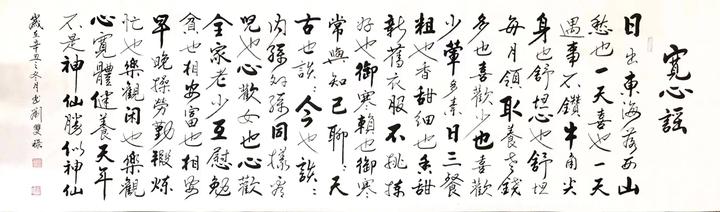 寬心謠
日出東海落西山
愁也一天喜也一天
遇事不鑽牛角尖
身也舒坦心也舒坦
每月領取養老錢
多也喜歡少也喜歡
少葷多素日三餐
粗也香甜細也香甜
新舊衣服不挑揀
好也御寒賴也御寒
常與知己聊:天
古也談:今也談:
内孫外孫同樣看
兒也心歡女也心歡
全家老少互慰勉
貧也相安富也相安
早晚操勞勤鍛煉
忙也樂觀閑也樂觀
心寬體健養天年
不是神仙勝似神仙
歲在辛丑之冬月 劉雙